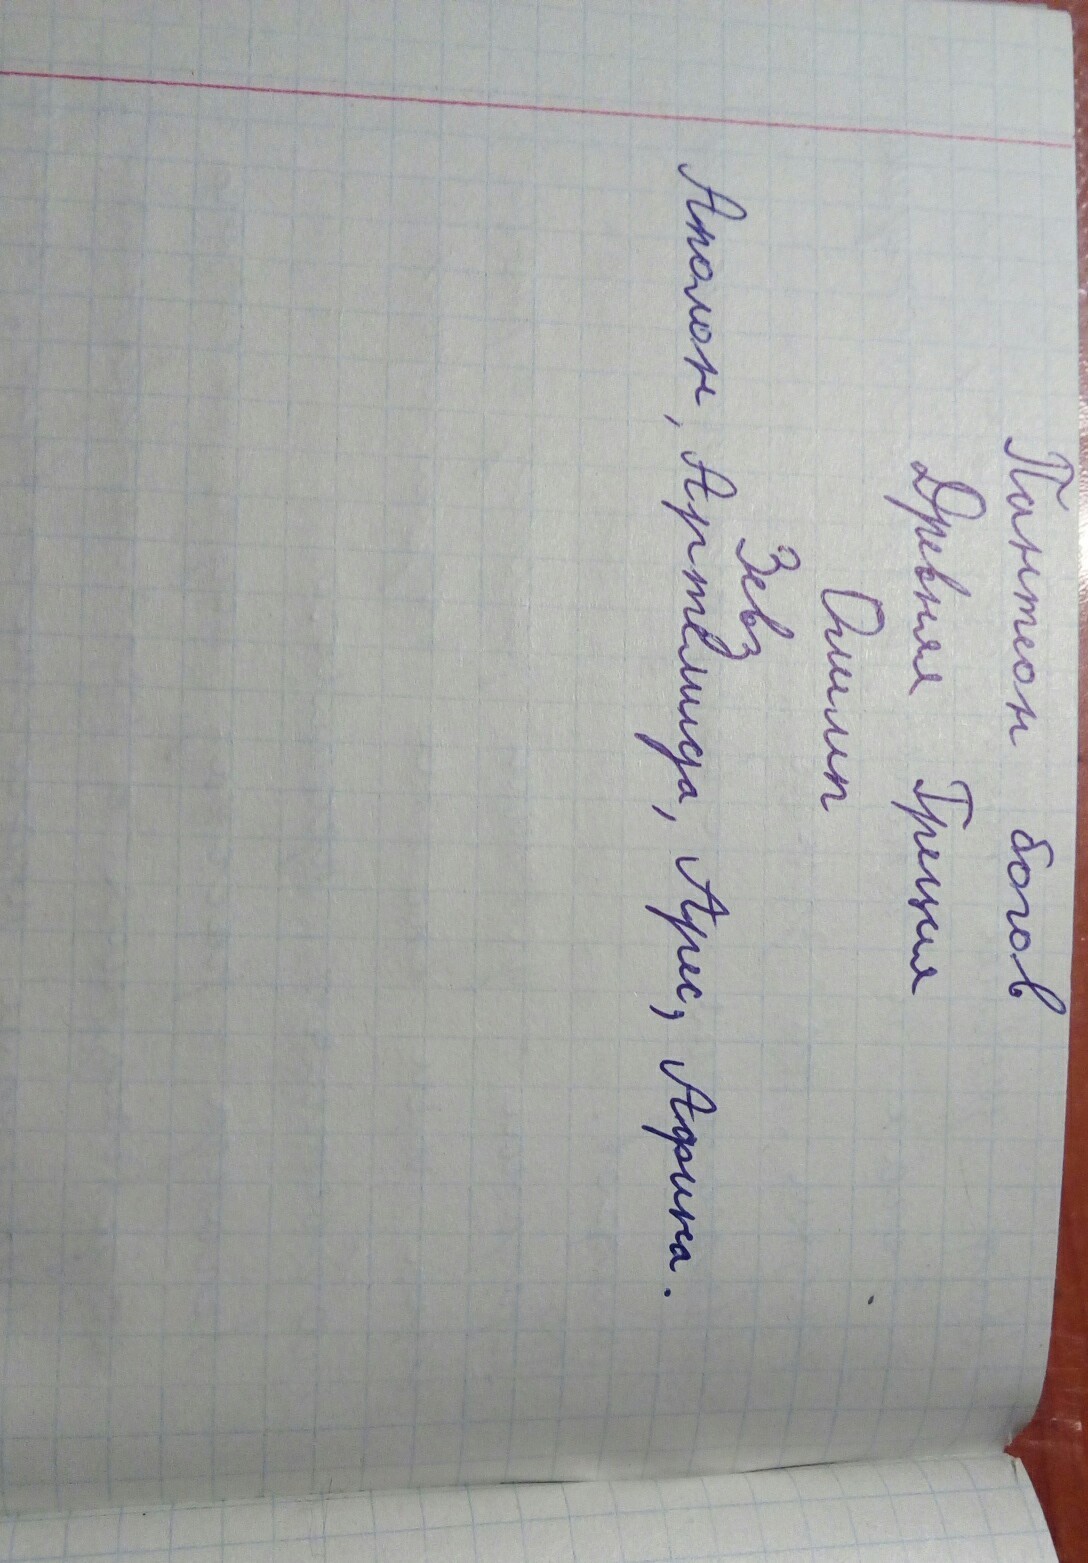 Пантеон богов
Древняя Греция
Олимп
Зевз
Аполон, Артемида, Арес, Афина.